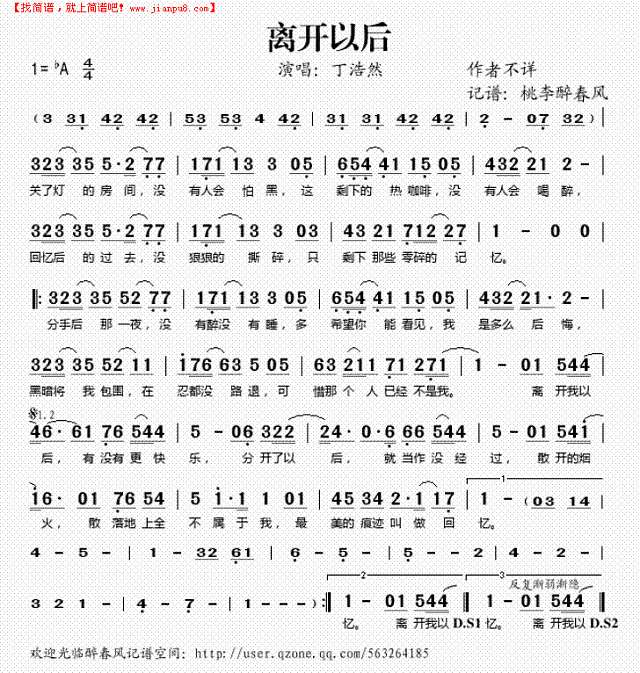 【找简谱，就上简谱吧！www.jianpu8.com】
离开以后
1=♭A 4/4 演唱：丁浩然 作者不详
记谱：桃李醉春风
（3 31 42 42 | 53 53 4 42 | 31 31 42 42 | 2 - 07 32）|
323 35 5·2 77 | 171 13 3 05 | 654 41 15 05 | 432 21 2 - |
关了灯 的房 间，没 有人会 怕黑，这 剩下的 热咖啡，没 有人会 喝醉，
323 35 5·2 77 | 171 13 3 03 | 43 21 712 27 | 1 - 0 0
回忆后 的过 去，没 狠狠的 撕碎，只 剩下那些零碎的记 忆。
‖: 323 35 52 77 | 171 13 3 05 | 654 41 15 05 | 432 21· 2 - |
分手后 那一夜，没 有醉没 有睡，多 希望你 能看见，我 是多么 后悔，
323 35 52 11 | i76 63 5 05 | 63 211 71 271 | 1 - 01 544 |
黑暗将 我包围，在 忍都没 路退，可 惜那个人已经不是我。 离 开我以
𝄋1.2
46· 61 76 544 | 5 - 06 322 | 24· 0·6 66 545 | 5 - 01 541 |
后，有没有更快 乐，分开了以 后，就当作没经 过，散开的烟
i6· 01 76 54 | 5 i·i 1 01 | 45 34 2·1 17 | 1 - （03 14 |
火，散落地上全 不属于我，最 美的痕迹叫做回 忆。
1
4 - 5 - | 1 - 32 61 | 6 - 5 - | 5 - 2 - |
3 2 1 - | 4 - 7 - | 1 - - -）:‖ 1 - 01 544 ‖ 1 - 01 544 ‖
2 3 反复渐弱渐隐
忆。 离 开我以 D.S1 忆。 离 开我以 D.S2
欢迎光临醉春风记谱空间：http://user.qzone.qq.com/563264185